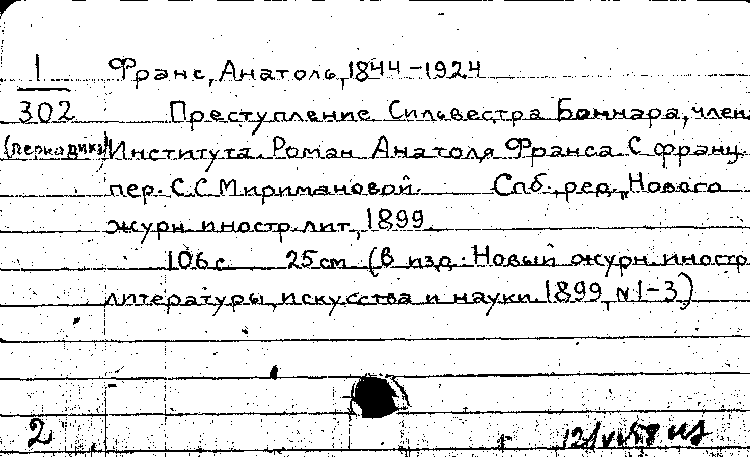 1 Франс, Анатоль, 1844-1924
302 Преступление Сильвестра Боннара, члена
(периодика) Института. Роман Анатоля Франса. С франц.
пер. С.С Миримановой. Спб., ред. „Нового
журн. иностр. лит., 1899.
106 с 25 см (В изд.: Новый журн. иностр
литературы, искусства и науки. 1899, N 1-3)
2